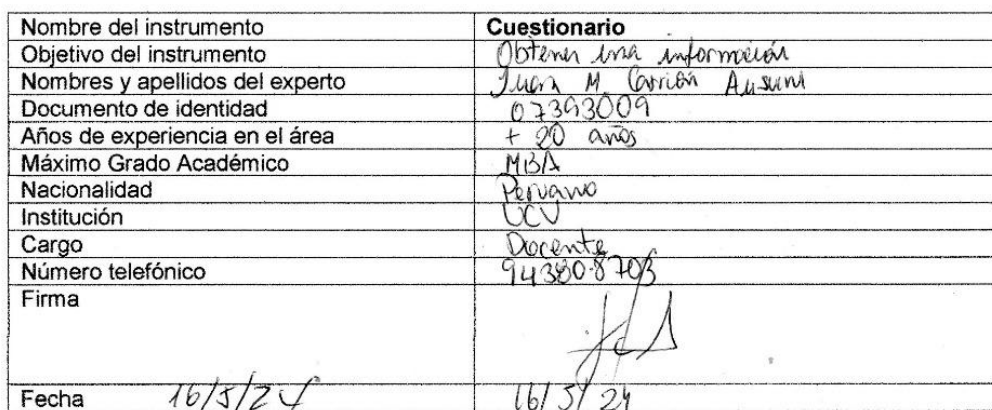 Nombre del instrumento Cuestionario
Objetivo del instrumento Obtener una información
Nombres y apellidos del experto Juan M. Carrión
Documento de identidad 07393009
Años de experiencia en el área + 20 años
Máximo Grado Académico MBA
Nacionalidad Peruano
Institución UCV
Cargo Docente
Número telefónico 943808703
Firma
Fecha 16/5/24 16/5/24